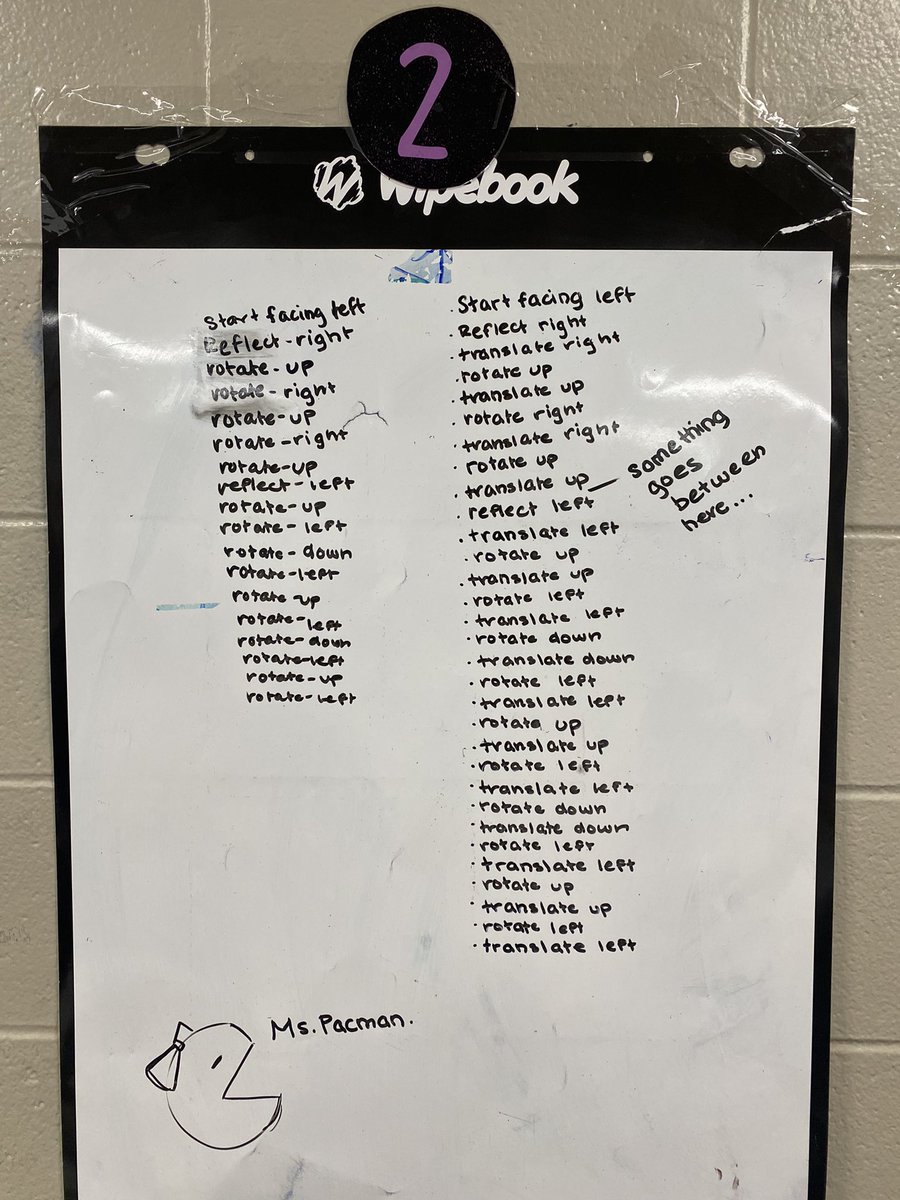 2
Wipebook
Start facing left
Reflect - right
rotate - up
rotate - right
rotate - up
rotate - right
rotate - up
reflect - left
rotate - up
rotate - left
rotate - down
rotate - left
rotate - up
rotate - left
rotate - down
rotate - left
rotate - up
rotate - left
· Start facing left
· Reflect right
· translate right
· rotate up
· translate up
· rotate right
· translate right
· rotate up
· translate up
· reflect left
· translate left
· rotate up
· translate up
· rotate left
· translate left
· rotate down
· translate down
· rotate left
· translate left
· rotate up
· translate up
· rotate left
· translate left
· rotate down
· translate down
· rotate left
· translate left
· rotate up
· translate up
· rotate left
· translate left
something
goes
between
here...
Ms. Pacman.